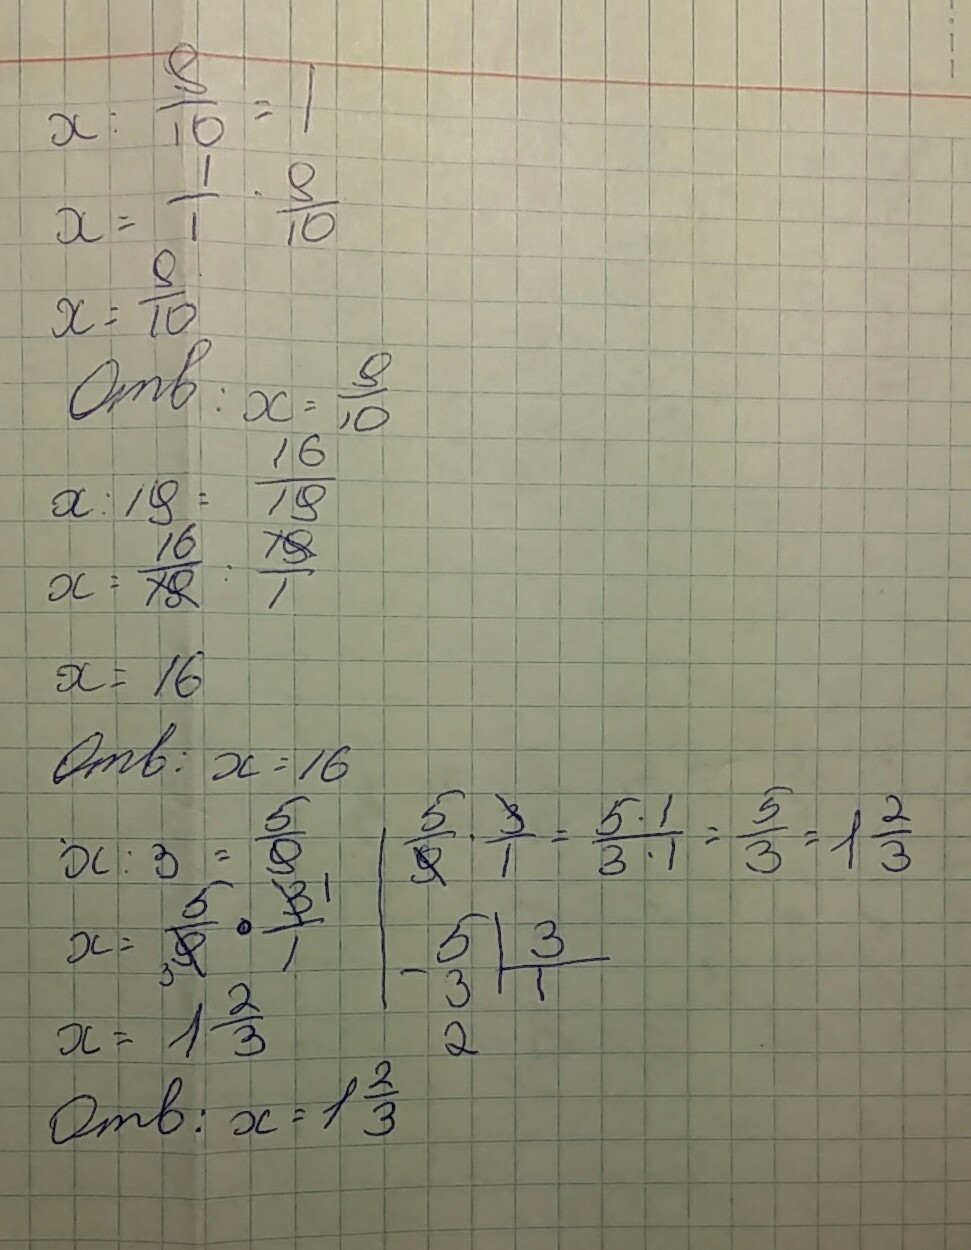 x : 9/10 = 1
x = 1/1 · 9/10
x = 9/10
Отв: x = 9/10
x : 19 = 16/19
x = 16/19 : 19/1
x = 16
Отв: x = 16
x : 3 = 5/9
x = 5/9 3 · 3/1 1
x = 1 2/3
Отв: x = 1 2/3
5/9 · 3/1 = 5·1/3·1 = 5/3 = 1 2/3
5 | 3
- 3 | 1
2